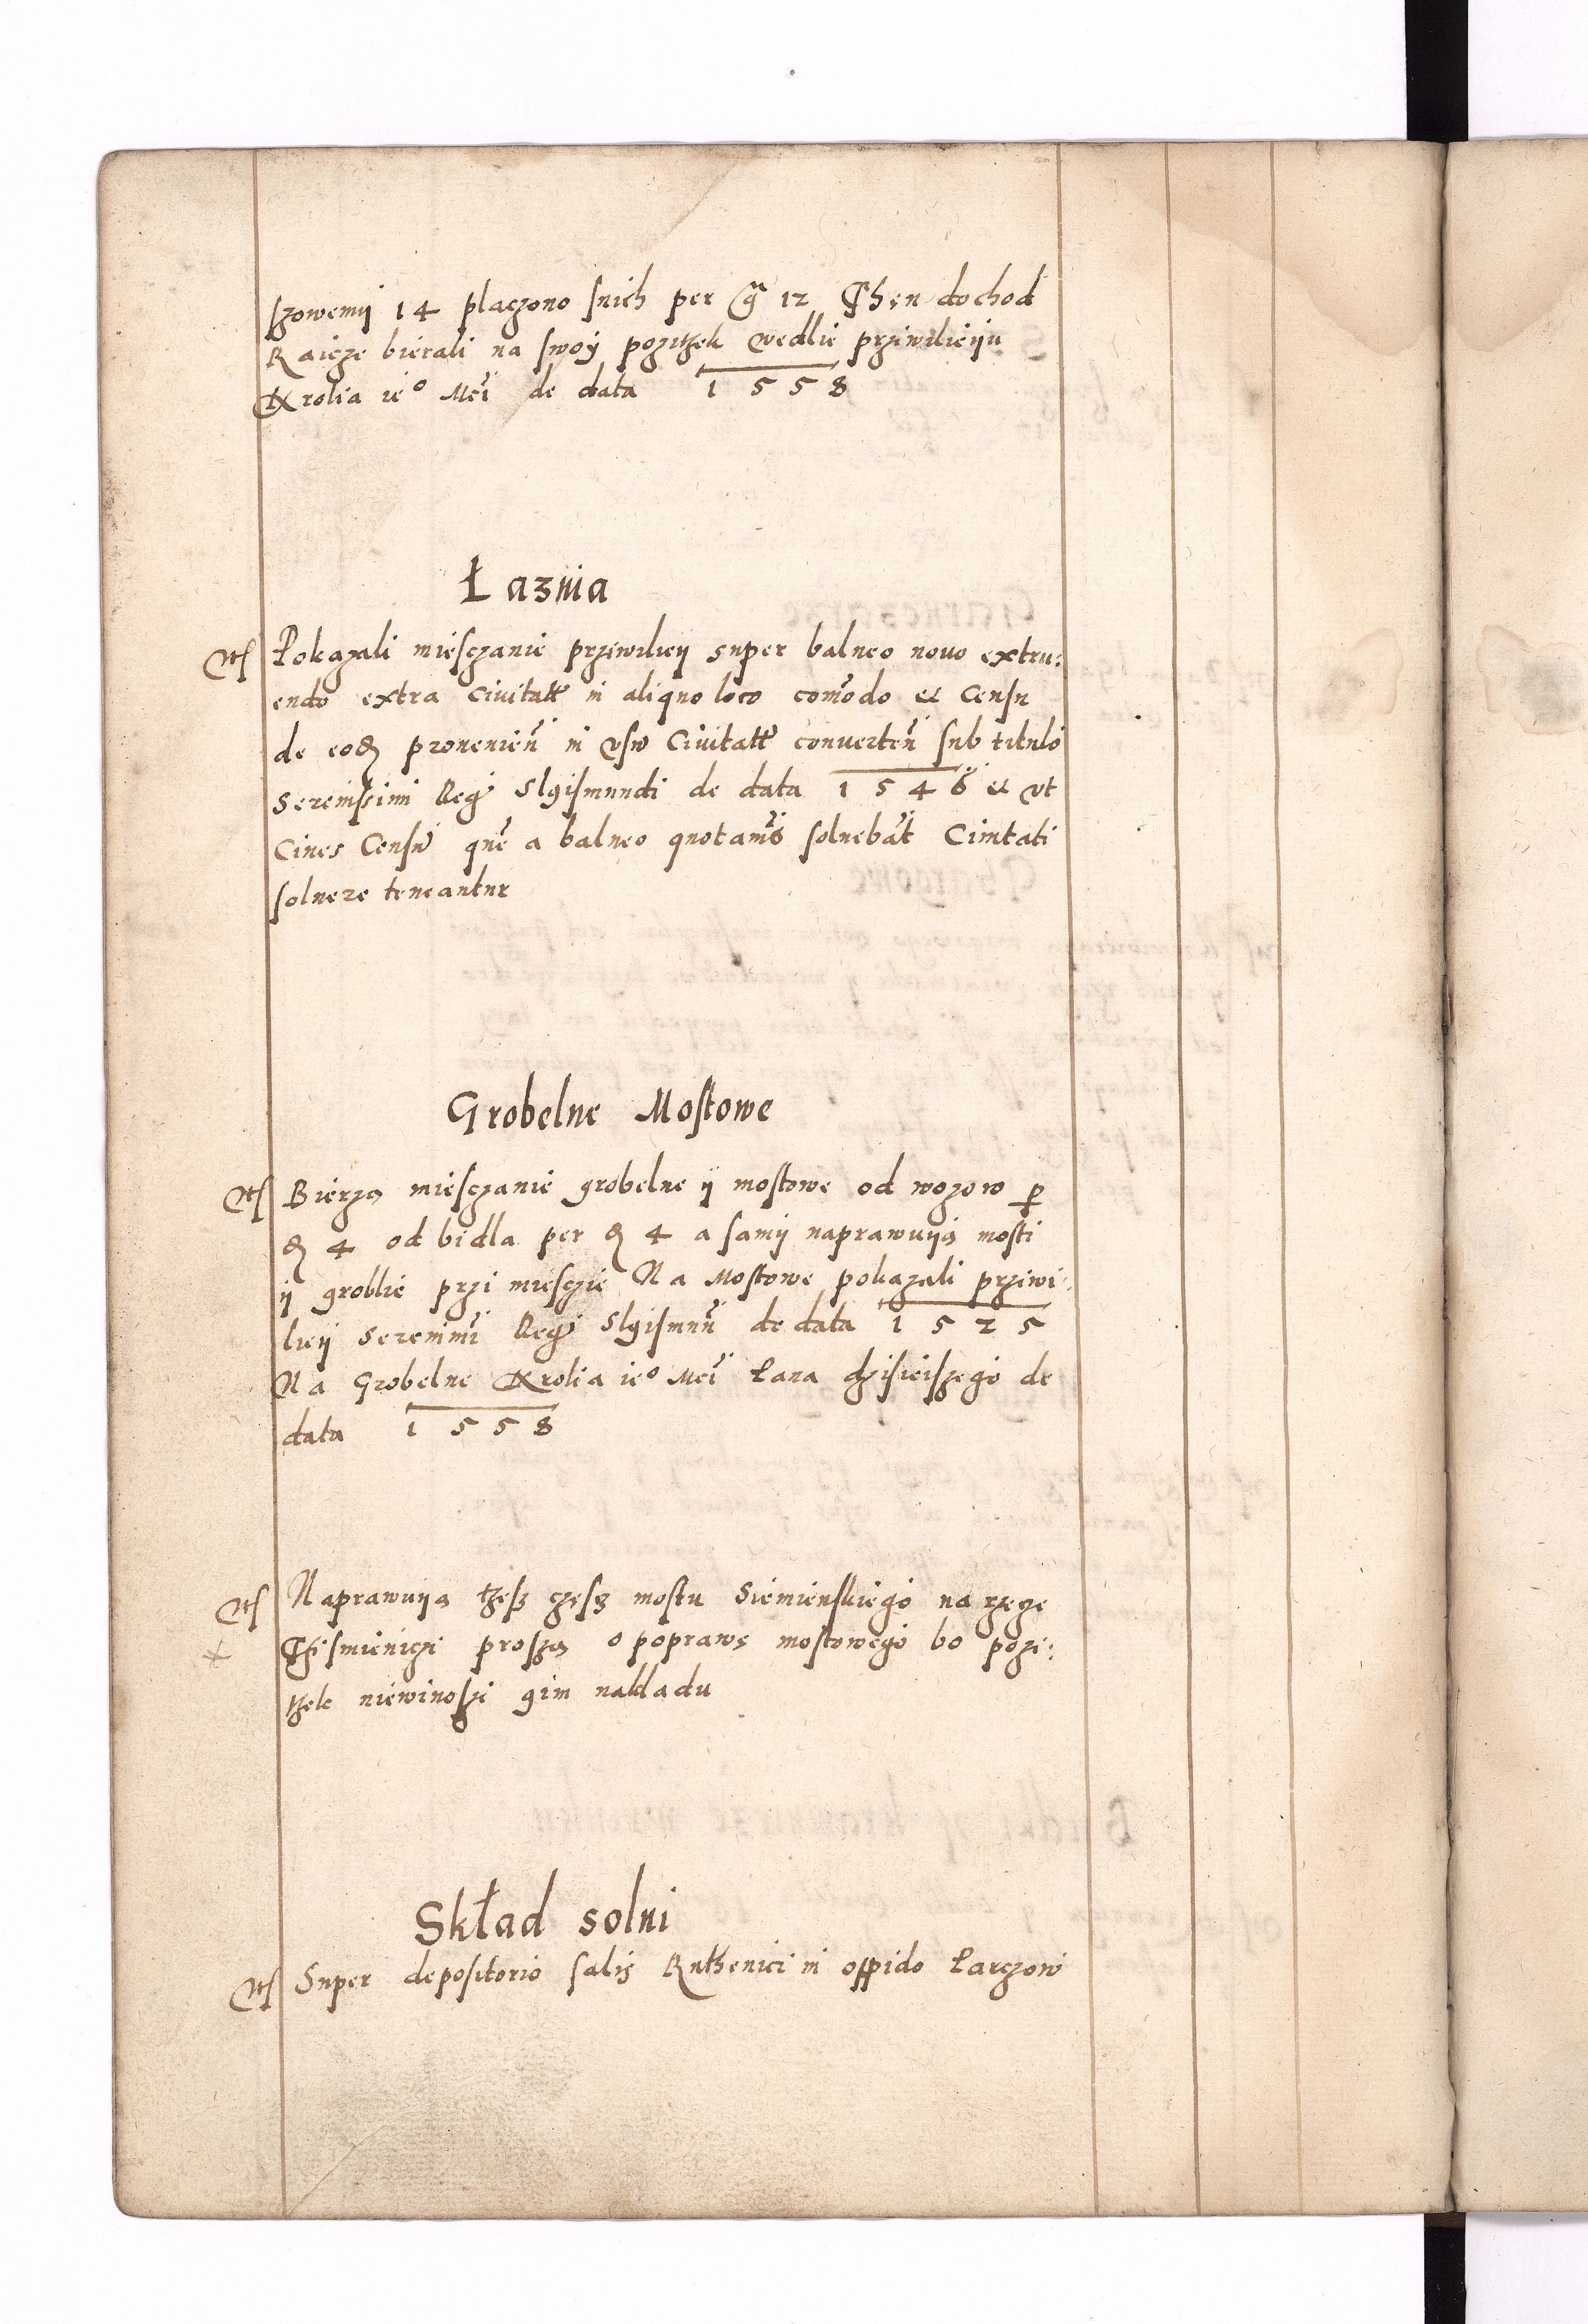 szowemy 14 placzono snich per gr 12 Then dochod
Raicze bierali na swoy pozitzek wedlie prziwilieiju
Krolia ieº Mci de data 1558
Łaznia
Itē Pokazali miesczanie prziwiliey super balneo nouo extru:
endo extra Ciuitatē in aliquo loco comōdo et Censu
de eodē prouenieñ in vsū Ciuitatē conuerteñ sub titulo
Serenissimi Regꝭ Sigismundi de data 1546 et vt
Ciues Censū quē a balneo quotañis soluebāt Ciuitati
soluere teneantur
Grobelne Mostowe
Itē Bierzą miesczanie grobelne y mostowe od wozow p̱
ꝺ 4 od bidla per ꝺ 4 a samy naprawuyą mosti
y groblie przi miesczie Na Mostowe pokazali prziwi:
liey Sereniṁi Regꝭ Sigismuñ de data 1525
Na Grobelne Krolia ieº Mci Pana dzisieiszego de
data 1558
Itē Naprawuyą tzesz czesz mostu Siemienskiego na rzecze
Tzismieniczi proszą o poprawę mostowego bo pozi:
tzek niewinoszi gim nakladu
Skład solni
Itē Super depositorio salis Ruthenici in oppido Parczow